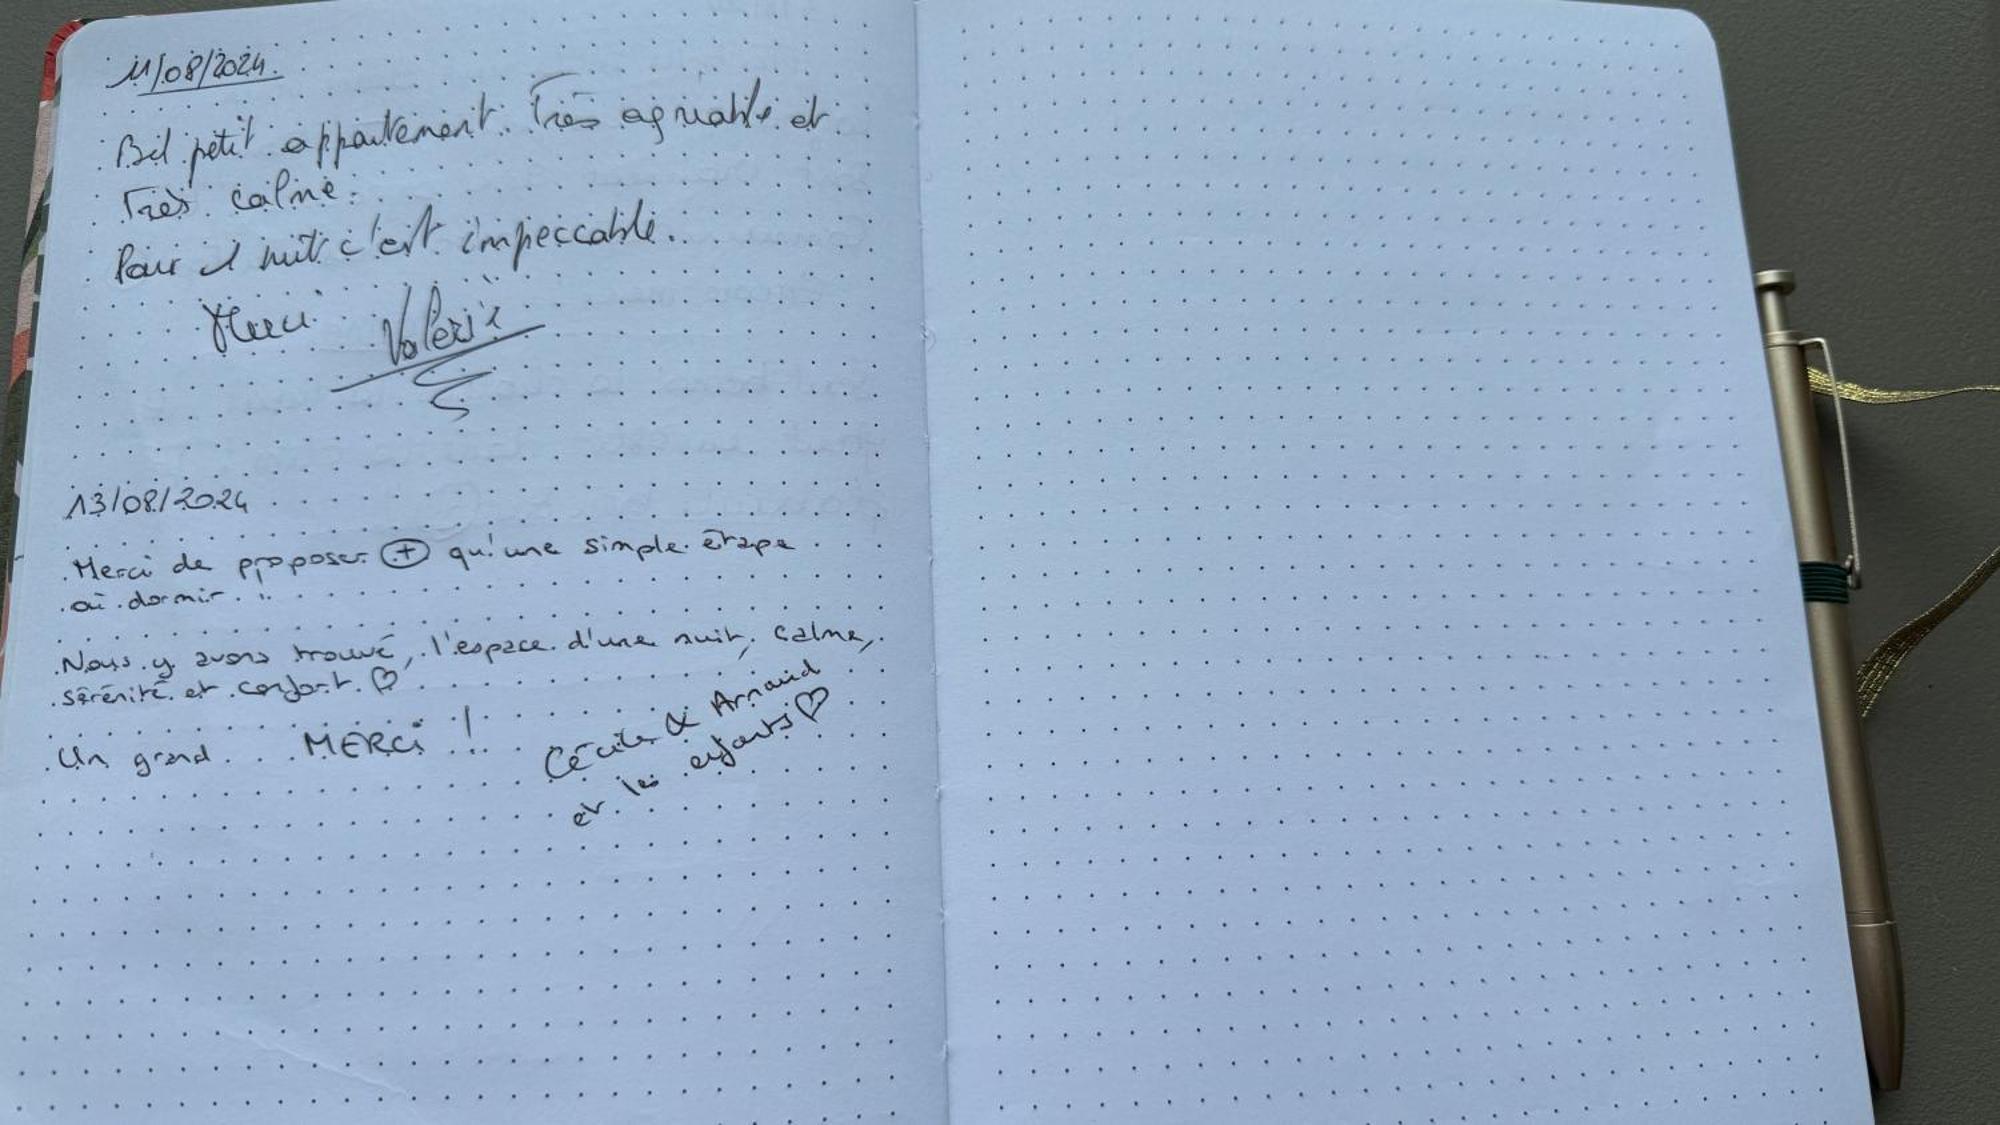 11/08/2024.
Bel petit appartement. Très agréable et
Très calme.
Pour 1 nuit c'est impeccable.
Merci Valérie
13/08/2024
Merci de proposer ⊕ qu'une simple étape
où dormir..
Nous y avons trouvé, l'espace d'une nuit, calme,
sérénité et confort. ♡
Un grand MERCi !
Cécile & Arnaud
et les enfants ♡